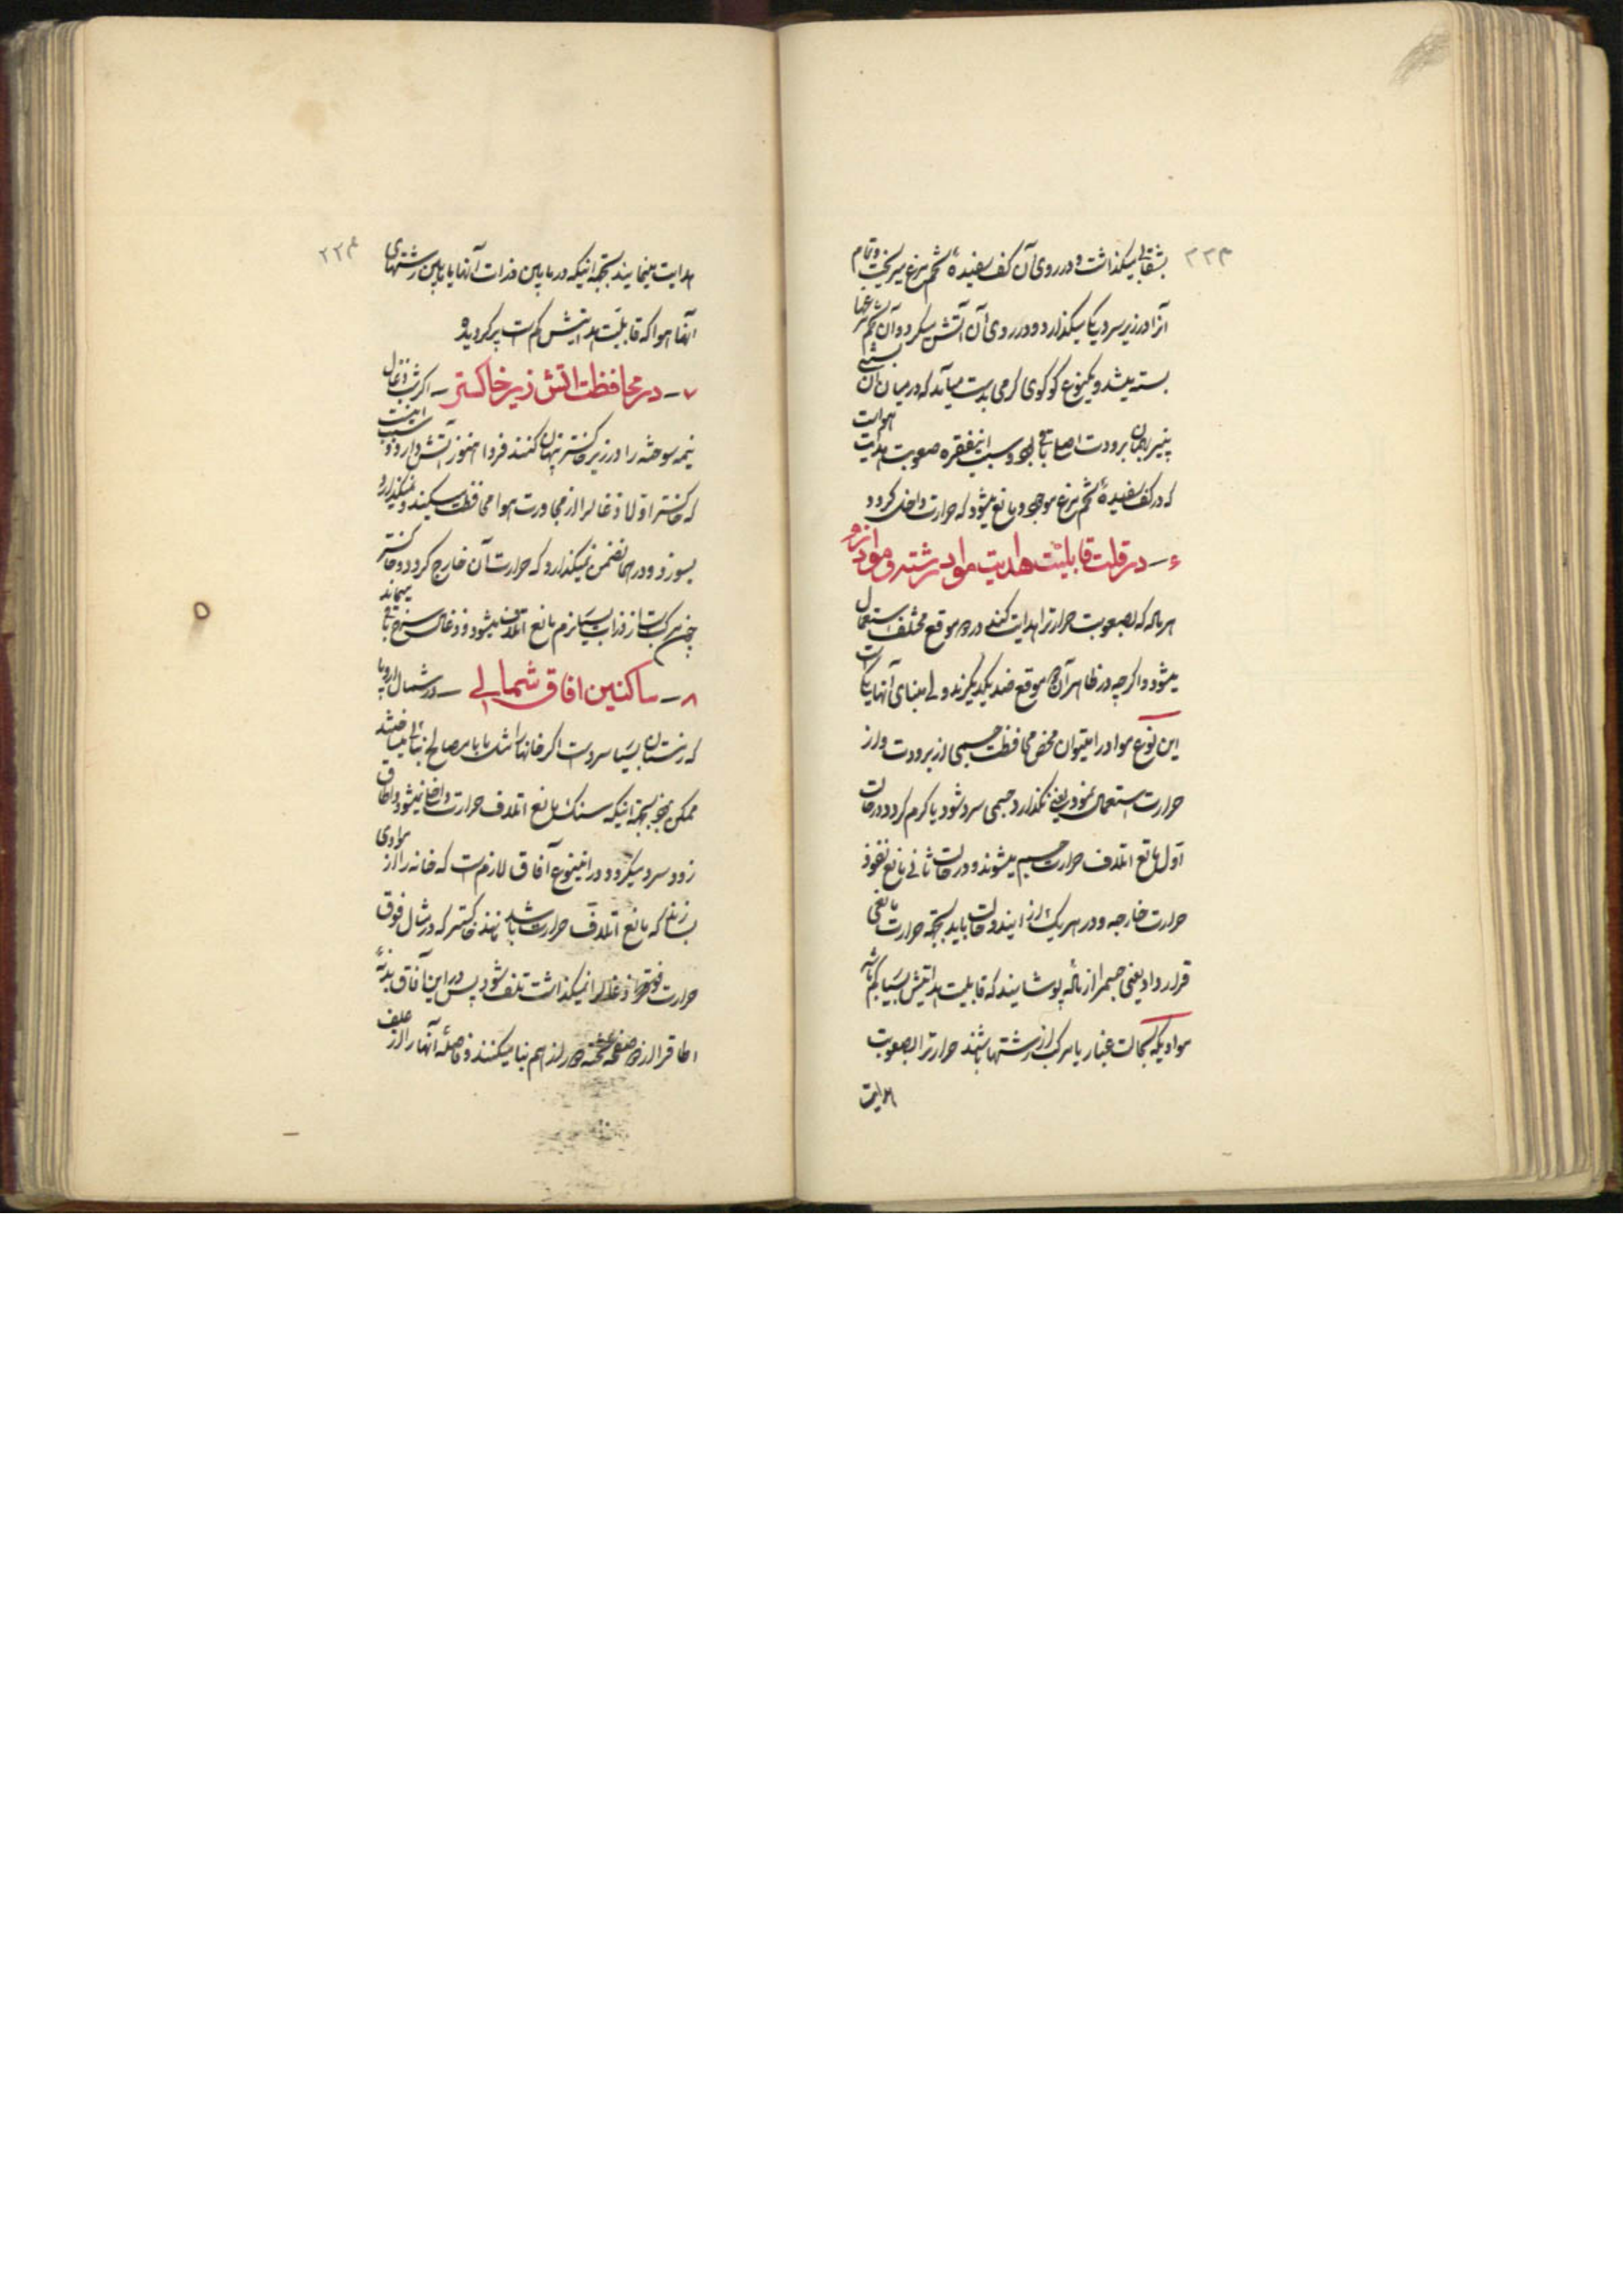 ۲۲۳
بشقابی میگذاشت و در روی آن کف سفیدهٔ تخم مرغ میریخت و تمام
آنرا در زیر سرد یکا میگذارد و در روی آن آتش میکرد و آن تخم مرغها
بسته میشد و یکنوع کوکوی گرمی بدست میآید که در میان آن بستنی
پنیر بهمان برودت اصلی باقی بود و سبب اینفقره صعوبت هدایت هوائیست
که در کف سفیدهٔ تخم مرغ موجود و مانع میشود که حرارت داخل گردد
۶ - در قلت قابلیت هدایت مواد رشته و مواد
هر ماده که بصعوبت حرارترا هدایت کند در دو موقع مختلف استعمال
میشود و اگرچه در ظاهر آن دو موقع ضد یکدیگرند ولی مبنای آنها یکیست
این نوع مواد را میتوان محض محافظت جسمی از برودت و از
حرارت استعمال نمود یعنی نگذارد جسمی سرد شود یا گرم گردد در حالت
اول مانع اتلاف حرارت جسم میشوند و در حالت ثانی مانع نفوذ
حرارت خارجه و در هر یک از ایندو حالت باید بجهة حرارت مانعی
قرار داد یعنی جسمرا از مادهٔ پوشانند که قابلیت هدایتش بسیار کم باشد
موادیکه بحالت غبار یا مرکب از رشتها باشند حرارترا بصعوبت
هدایت
۲۲۴
هدایت مینمایند بجهة آنیکه در مابین ذرات آنها یا مابین رشتهای
آنها هوا که قابلیت هدایتش کم است پر گردیده
۷ - در محافظت اتش زیر خاکستر - اگر شب ذغال
نیمه سوخته را در زیر خاکستر پنهان کنند فردا هنوز آتش دارد و سبب اینست
که خاکستر اولا ذغالرا از مجاورت هوا محافظت میکند و نمیگذارد
بسوزد و در همانضمن نمیگذارد که حرارت آن خارج گردد و خاکستر
چون مرکبست از ذرات بسیار نرم مانع اتلاف میشود و ذغال سرخ باقی میماند
۸ - ساکنین افاق شمالی - در شمال اروپا
که زمستان بسیار سرد است اگر خانها را مثل ما با مصالح بنائی میساختند
ممکن نبود بجهة آنیکه سنگ مانع اتلاف حرارت داخل نمیشود و اطاق
زود سرد میگردد در اینوع آفاق لازم است که خانه را از موادی
بسازند که مانع اتلاف حرارت باشد مانند خاکستر که در مثال فوق
حرارت ذغالرا نمیگذاشت تلف شود پس در این آفاق بدنهٔ
اطاقرا از دو صفحه تخته دور از هم بنا میکنند و فاصلهٔ آنها را از علف